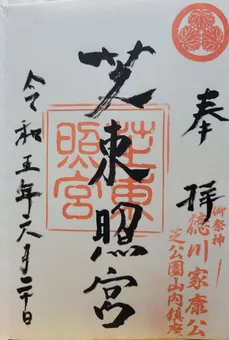 奉拝
御祭神
徳川家康公
芝公園山内鎮座
芝東照宮
芝東
照宮
令和五年六月二十日